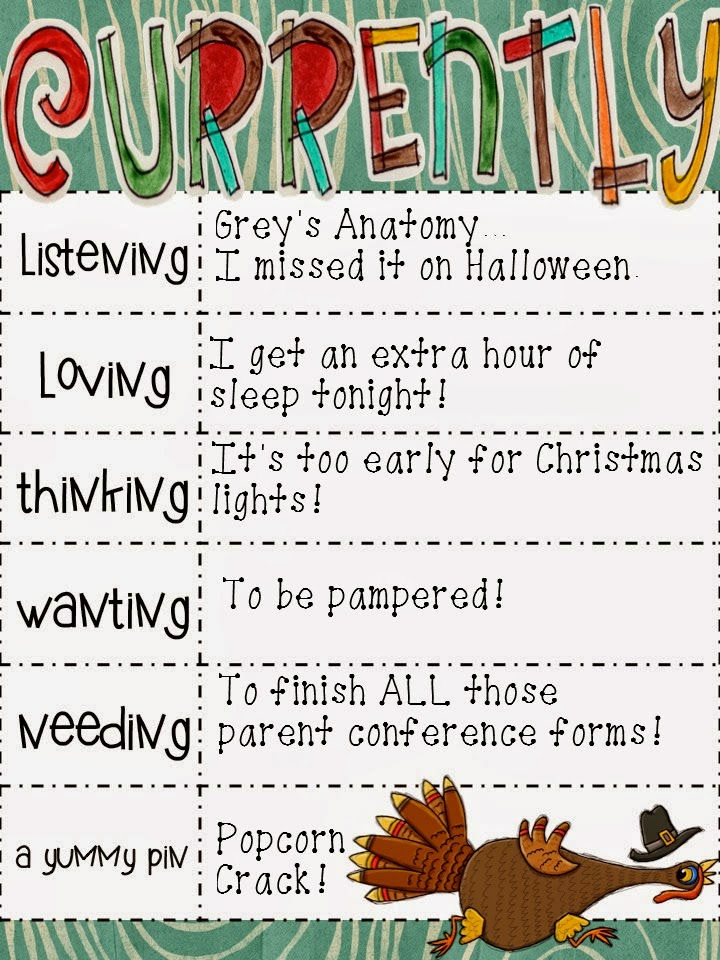 CURRENTLY
Listening
Grey's Anatomy...
I missed it on Halloween.
Loving
I get an extra hour of
sleep tonight!
thinking
It's too early for Christmas
lights!
wanting
To be pampered!
needing
To finish ALL those
parent conference forms!
a yummy pin
Popcorn
Crack!